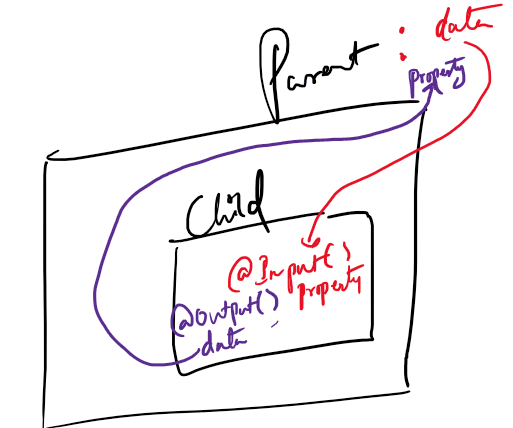 Parent : data
Property
Child
@Input()
property
@Output()
data